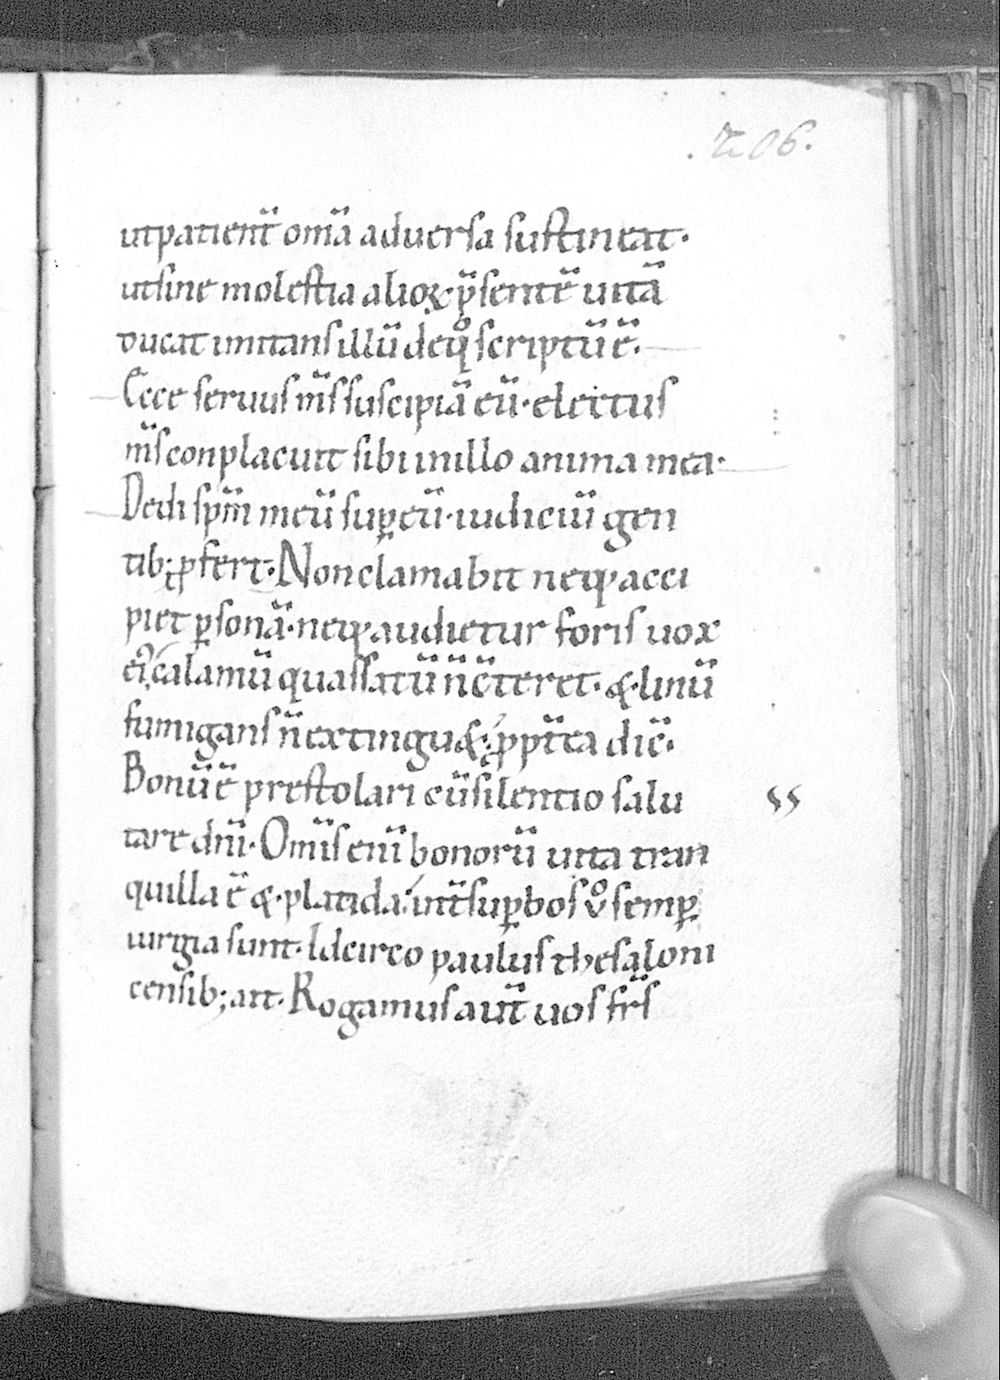 .206.
ut patient̄ om̄a aduersa sustineat.
ut sine molestia alioꝝ p̄sentē uitā
ducat imitans illū de qͦ scriptū ē.
Ecce seruus m̄s suscipiā eū. electus
m̄s conplacuit sibi in illo anima mea.
Dedi sp̄m meū sup̱ eū. iudiciū gen
tib; ꝓfert. Non clamabit neq; acci
piet ꝑsonā. neq; audietur foris uox
ei᾽. calamū quassatū n̄ c̄teret. & linū
fumigans n̄ extingu&. ꝓpꝉ̄ta dic̄.
Bonū ē prestolari cū silentio salu
tare dn̄i. Om̄is eni̅ bonorū uita tran
quilla ē & placida. int̄ suꝑbos uͦ semꝑ
iurgia sunt. Idcirco paulus thesaloni
censib; ait. Rogamus aut̄ uos fr̄s